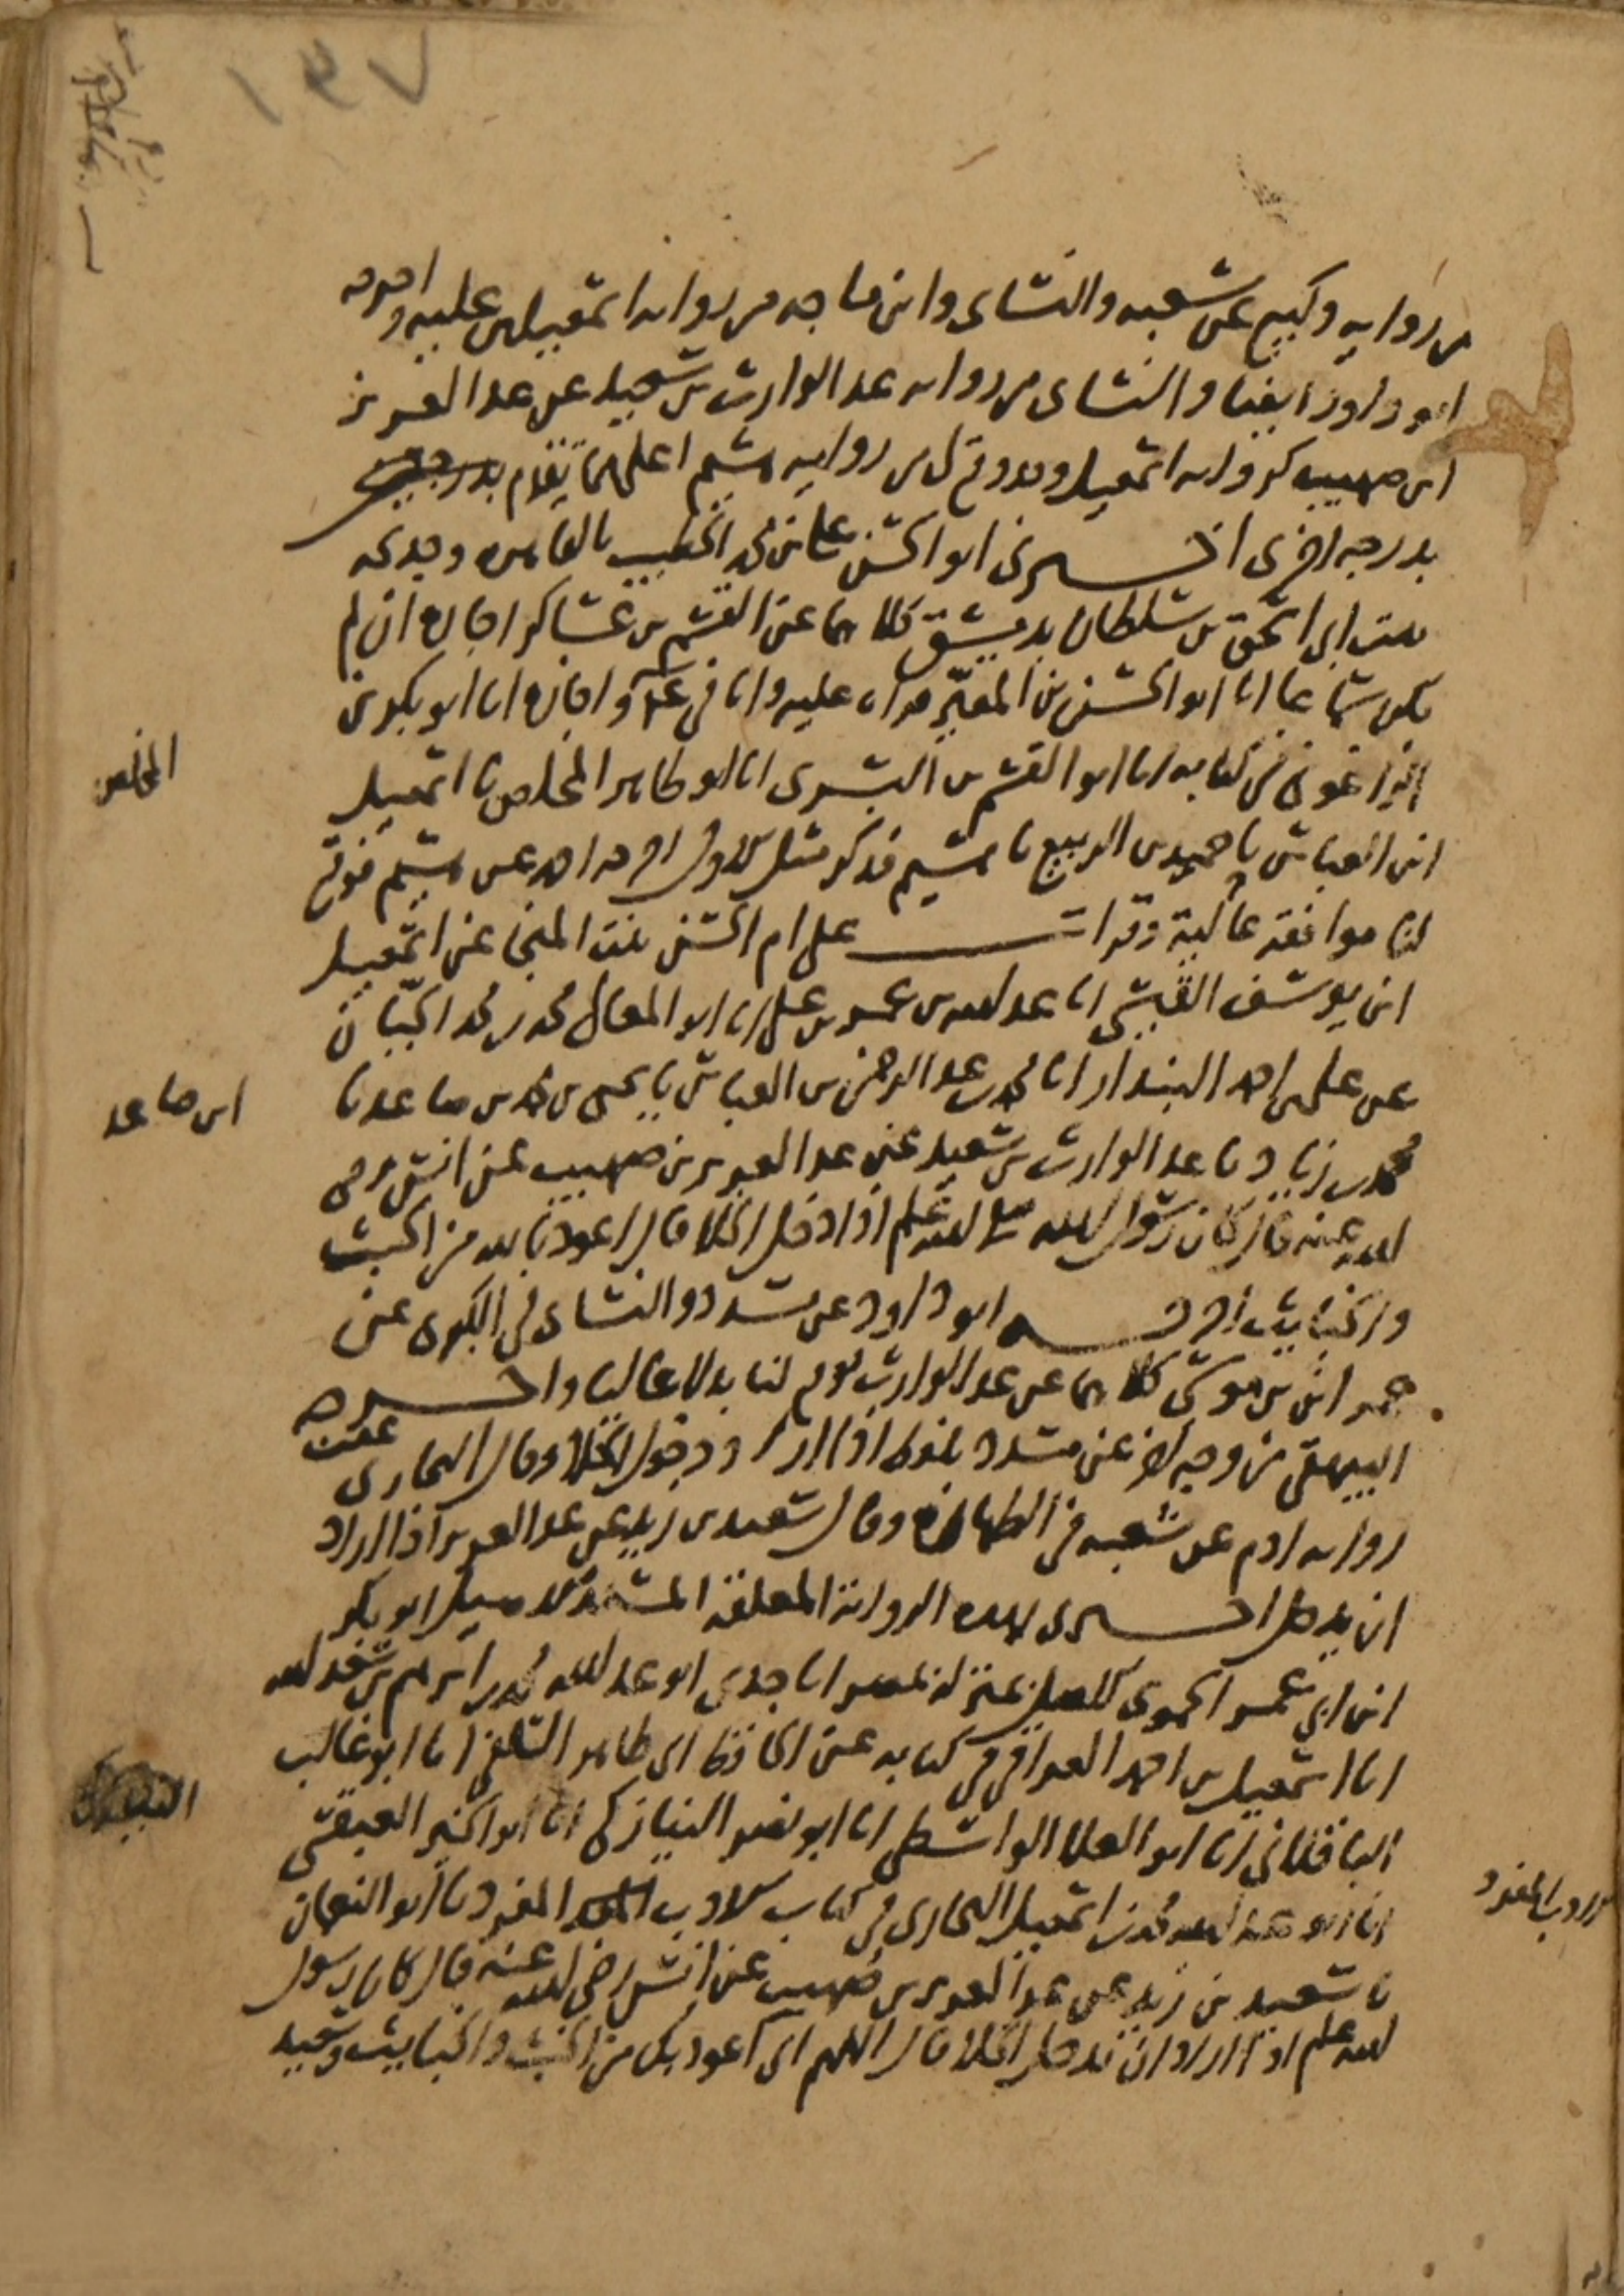 ١٣٧
من رواية وكيع عن شعبة والنسائي وابن ماجه من رواية اسمعيل بن علية واخرجه
ابو داود ايضا والنسائي من رواية عبد الوارث بن سعيد عن عبد العزيز
ابن صهيب كرواية اسمعيل وقد وقع لي من رواية هشيم اعلى مما تقدم بدرجتين
بدرجة اخرى اخبرني ابو الحسن علي بن محمد الخطيب بالقاهرة وخديجة
بنت ابي اسحق بن سلطان بدمشق كلاهما عن القسم بن عساكر اجازة ان لم
يكن سماعا انا ابو الحسن بن المقير قراءة عليه وانا في واجازة انا ابو بكر بن
الزاغوني في كتابه انا ابو القسم بن البسري انا ابو طاهر المخلص نا اسمعيل
المخلص
ابن العباس نا حميد بن الربيع نا هشيم فذكر مثل الاول اخرجه احمد عن هشيم فوقع
لنا موافقة عالية وقرات على ام الحسن بنت المنجا عن اسمعيل
ابن يوسف القيسي انا عبد الله بن عمر بن علي انا ابو المعالي محمد بن محمد الجبان
عن علي بن احمد البندار انا محمد بن عبد الرحمن بن العباس نا يحيى بن محمد بن صاعد نا
ابن صاعد
محمد بن زياد نا عبد الوارث بن سعيد عن عبد العزيز بن صهيب عن انس رضي
الله عنه قال كان رسول الله صلى الله عليه وسلم اذا دخل الخلا قال اعوذ بالله من الخبث
والخبايث اخرجه ابو داود عن مسدد والنسائي في الكبرى عن
عمران بن موسى كلاهما عن عبد الوارث فوقع لنا بدلا عاليا واخرجه
البيهقي من وجه اخر عن مسدد بلفظ اذا اراد دخول الخلا وقال البخاري عقب
رواية ادم عن شعبة في الطهارة وقال سعيد بن زيد عن عبد العزيز اذا اراد
ان يدخل اخبرني بهذه الرواية المعلقة المسند الاصيل ابو بكر
ابن ابي عمر الحموي بمنزله بمصر انا جدي ابو عبد الله محمد بن ابرهيم بن سعد الله
انا اسمعيل بن احمد العراقي في كتابه عن الحافظ ابي طاهر السلفي انا ابو غالب
الباقلاني انا ابو العلا الواسطي انا ابو نصر النيازكي انا ابو الخير العبقسي
انا ابو عبد الله محمد بن اسمعيل البخاري في كتاب الادب المفرد نا ابو النعمان
الادب المفرد
نا سعيد بن زيد عن عبد العزيز بن صهيب عن انس رضي الله عنه قال كان رسول
الله عليه وسلم اذا اراد ان يدخل الخلا قال اللهم اني اعوذ بك من الخبث والخبايث وسعيد